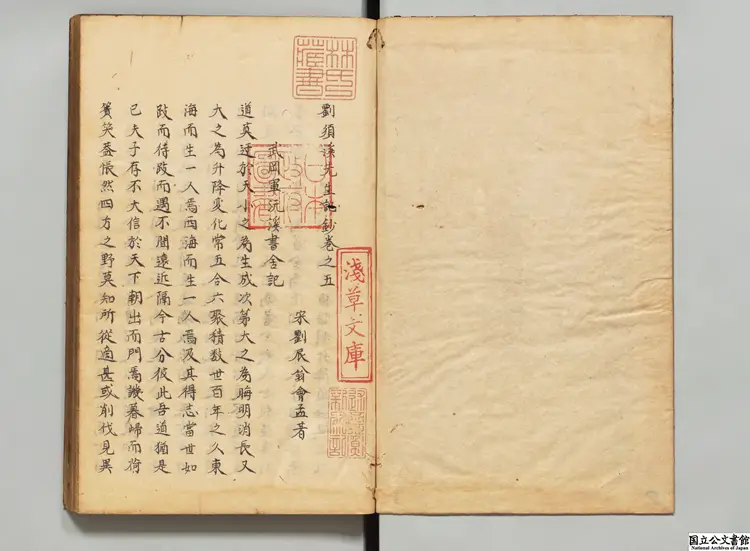 劉須溪先生記鈔卷之五
宋劉辰翁會孟著
武岡軍沅溪書舍記
道莫迂於天小之為生成次第大之為晦明消長又
大之為升降變化常五合六聚積数世百年之久東
海而生一人焉西海而生一人焉及其得志當世如
跂而待跂而遇不間遠近隔今古分彼此吾道猶是
已夫子存不大信於天下朝出而門焉譏暮歸而荷
簣笑蓋悵然四方之野莫知所從適甚或削伐見異
林氏藏書
日本政府圖書
淺草文庫
国立公文書館
National Archives of Japan